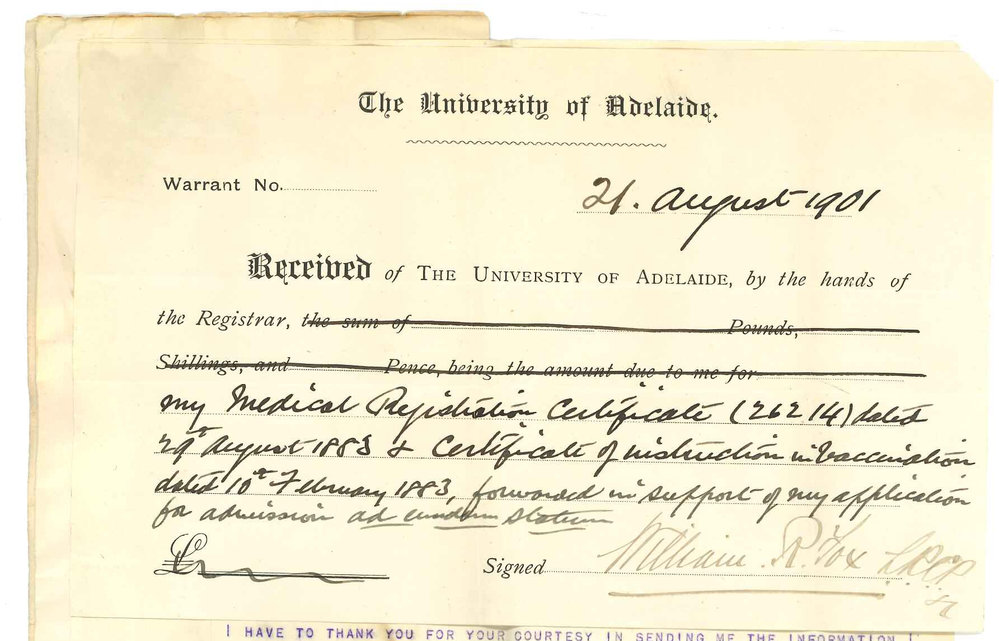 The University of Adelaide.
Warrant No.
21. August 1901
Received of THE UNIVERSITY OF ADELAIDE, by the hands of
the Registrar, the sum of Pounds,
Shillings, and Pence, being the amount due to me for
my Medical Registration Certificate (26214) dated
29th August 1883 & Certificate of instruction in Vaccination
dated 10th February 1883, forwarded in support of my application
for admission ad eundem statum
£
Signed William R. Fox LRCP
I HAVE TO THANK YOU FOR YOUR COURTESY IN SENDING ME THE INFORMATION I